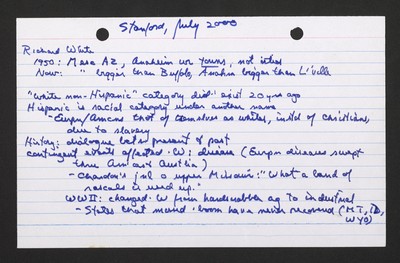 Stanford, July 2000
Richard White
1950: Mesa AZ, Anaheim were towns, not cities
Now: " bigger than Buffalo, Anaheim bigger than L'ville
"White non-Hispanic" category didn't exist 20 yrs ago
Hispanic is racial category under another name
- Eurpn/Amcns thot of themselves as whites, instd of christians,
due to slavery
History: dialogue betw present & past
contingent events affected W: disease (Eurpn diseases swept
thru Am
- jnl upper Missouri: "What a land of
rascals is
WWII: changed W from ag to industrial
- States that missed boom have never recovered (MT, ID,
WYO)